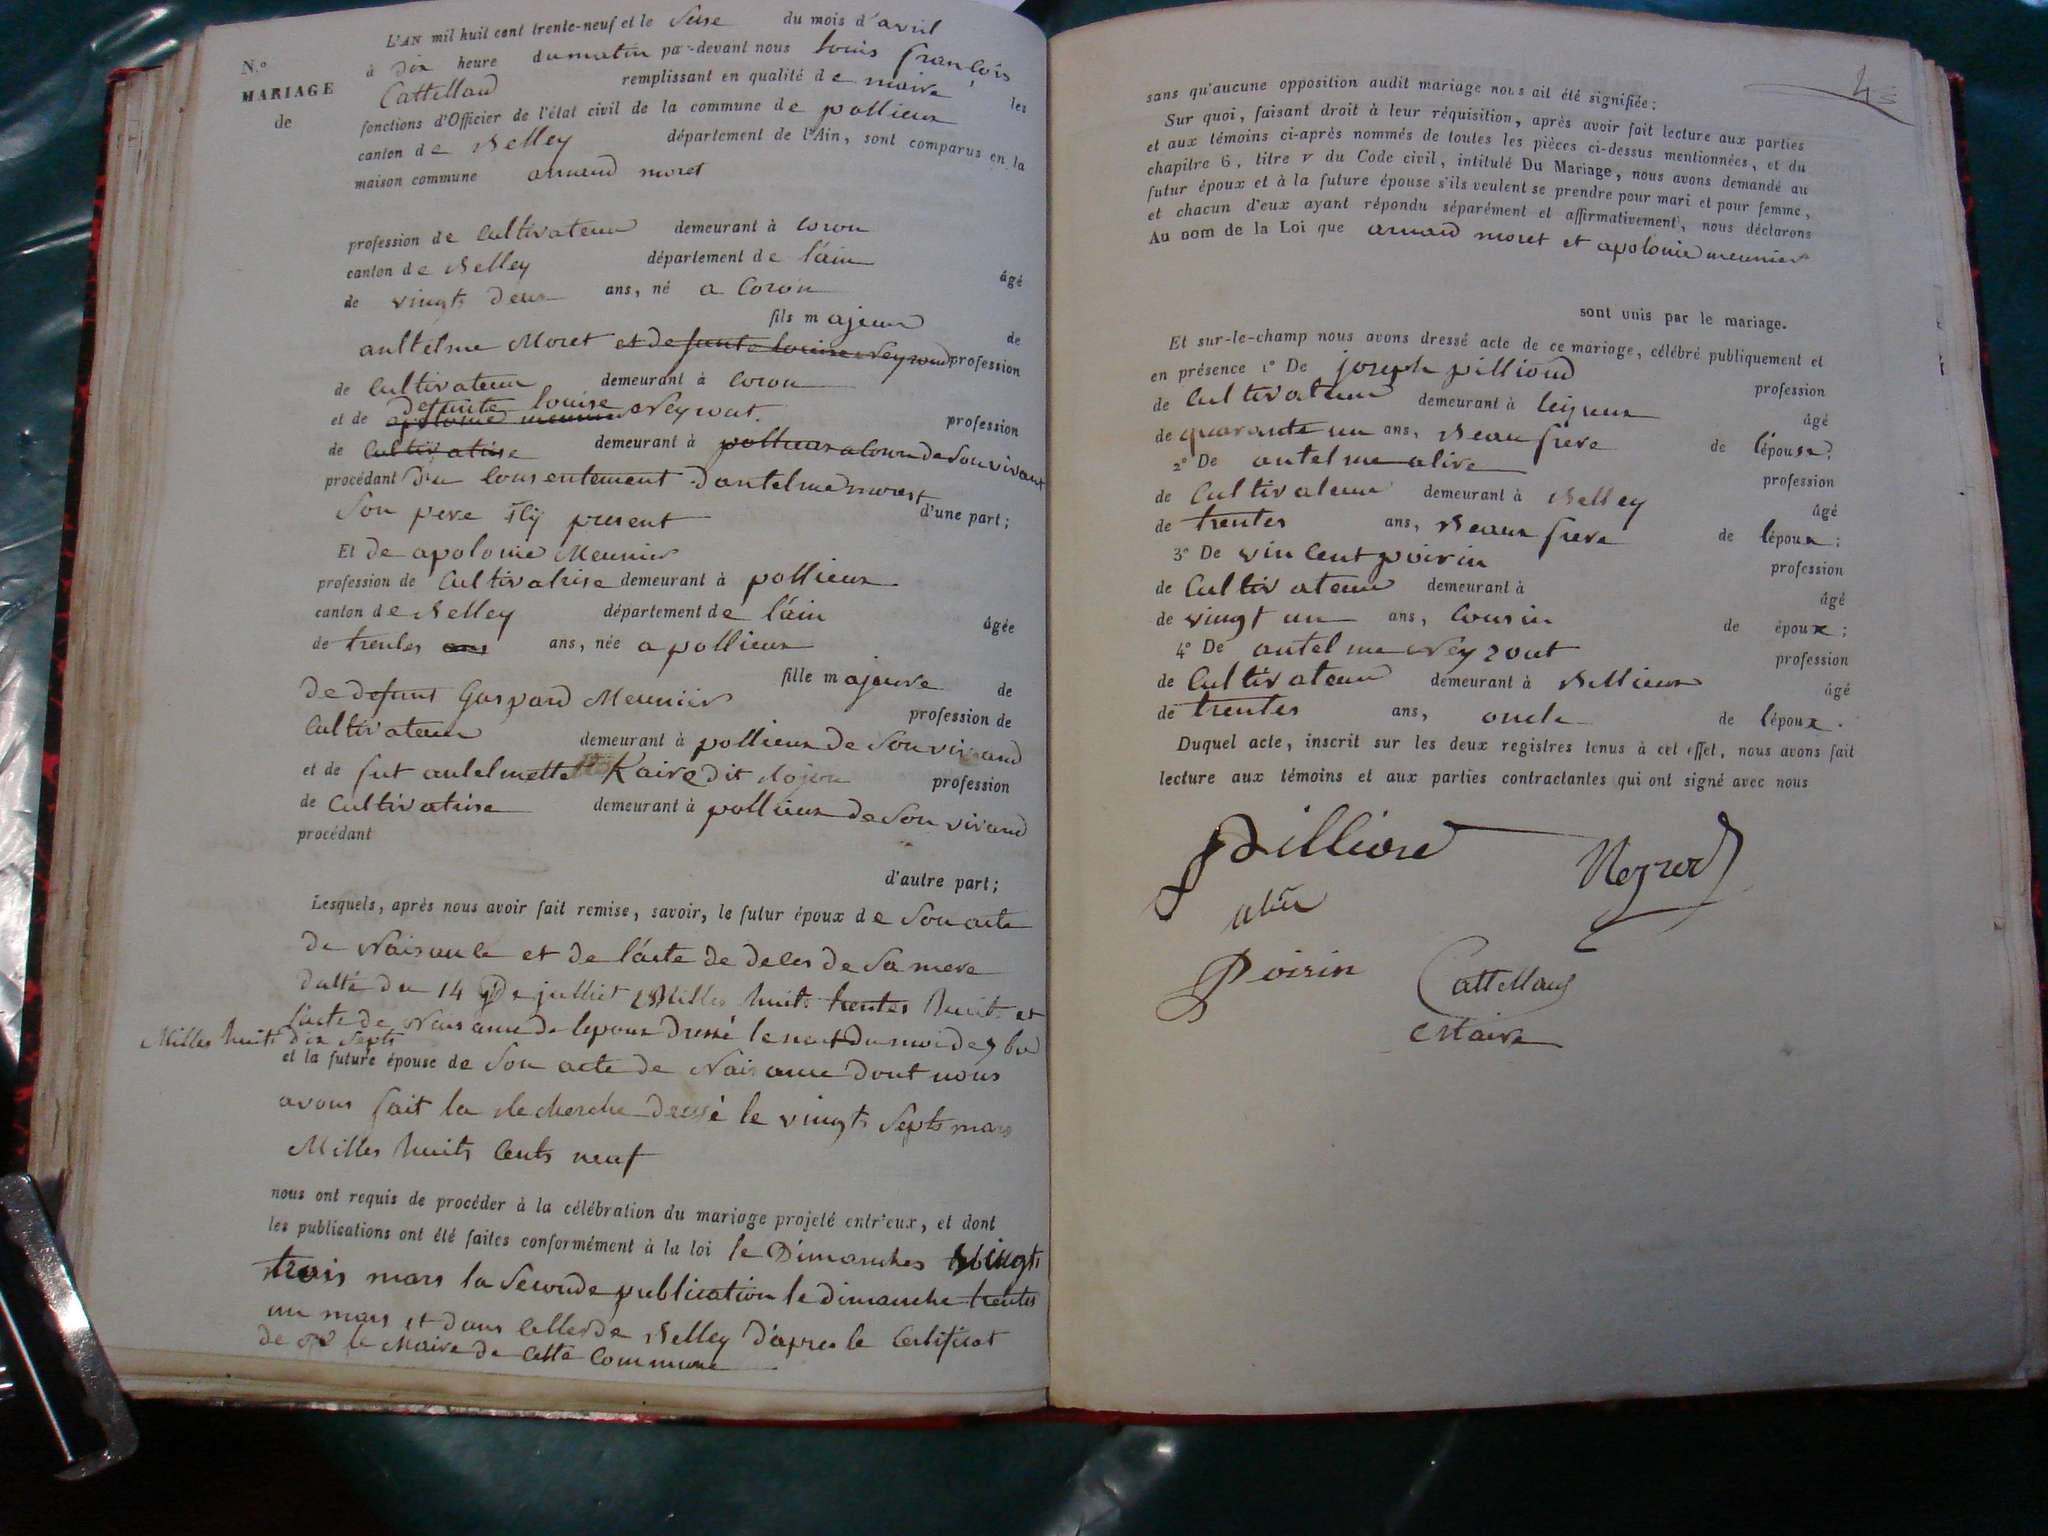 N.º
MARIAGE
de
L'AN mil huit cent trente-neuf et le seise du mois d'avril
à dix heure du matin par-devant nous louis françois
Cattilland remplissant en qualité de maire les
fonctions d'Officier de l'état civil de la commune de pollieux
canton de Belley département de l'Ain, sont comparus en la
maison commune armand moret
profession de cultivateur demeurant à coron
canton de Belley département de l'ain
âgé
de vingts deux ans, né a coron
fils majeur de
anltelme Moret et de funte louise Neyroud profession
de cultivateur demeurant à coron
defunte louise
et de apolonie meunier Neyrout profession
de cultivatrise demeurant à pollieux a coron de son vivant
procédant du consentement d'antelme moret
son pere ily present d'une part;
Et de apolonie Meunier
profession de cultivatrise demeurant à pollieux
canton de Belley département de l'ain
âgée
de trentes ans ans, née a pollieux
fille majeure de
de defunt Gaspard Meunier profession de
cultivateur demeurant à pollieux de son vivand
et de fut antelmette Kaire dit profession
de cultivatrise demeurant à pollieux de son vivand
procédant
d'autre part;
Lesquels, après nous avoir fait remise, savoir, le futur époux de son acte
de Naisance et de l'acte de deces de sa mere
datté du 14 De juilliet Milles huits trentes huits et
l'acte de Naisance de lepoux dressé le neuf du moi de 9 bre
Milles huits dix septs
et la future épouse de son acte de Naisance dont nous
avons fait la Recherche dressé le vingts septs mars
Milles huits cents neuf
nous ont requis de procéder à la célébration du mariage projeté entr'eux, et dont
les publications ont été faites conformément à la loi le Dimanches vingts
trois mars la seconde publication le dimanche trentes
un mars et dans celle de Belley d'apres le certificat
de le Maire de cette commune
sans qu'aucune opposition audit mariage nous ait été signifiée;
Sur quoi, faisant droit à leur réquisition, après avoir fait lecture aux parties
et aux témoins ci-après nommés de toutes les pièces ci-dessus mentionnées, et du
chapitre 6, titre v du Code civil, intitulé Du Mariage, nous avons demandé au
futur époux et à la future épouse s'ils veulent se prendre pour mari et pour femme,
et chacun d'eux ayant répondu séparément et affirmativement, nous déclarons
Au nom de la Loi que armand moret et apolonie meunier
sont unis par le mariage.
Et sur-le-champ nous avons dressé acte de ce mariage, célébré publiquement et
en présence 1º De joseph pilliond
profession
de cultivateur demeurant à leijeux
âgé
de quarante un ans, Beau frere de l'épouse;
2º De antelme alire
profession
de cultivateur demeurant à Belley
âgé
de trentes ans, Beaux frere de l'époux;
3º De vincent poirin
profession
de cultivateur demeurant à
âgé
de vingt un ans, cousin de époux;
4º De antelme Neyrout
profession
de cultivateur demeurant à Billieux
âgé
de trentes ans, oncle de l'époux.
Duquel acte, inscrit sur les deux registres tenus à cet effet, nous avons fait
lecture aux témoins et aux parties contractantes qui ont signé avec nous
Pilliond Neyrod
Poirin Cattilland
Maire